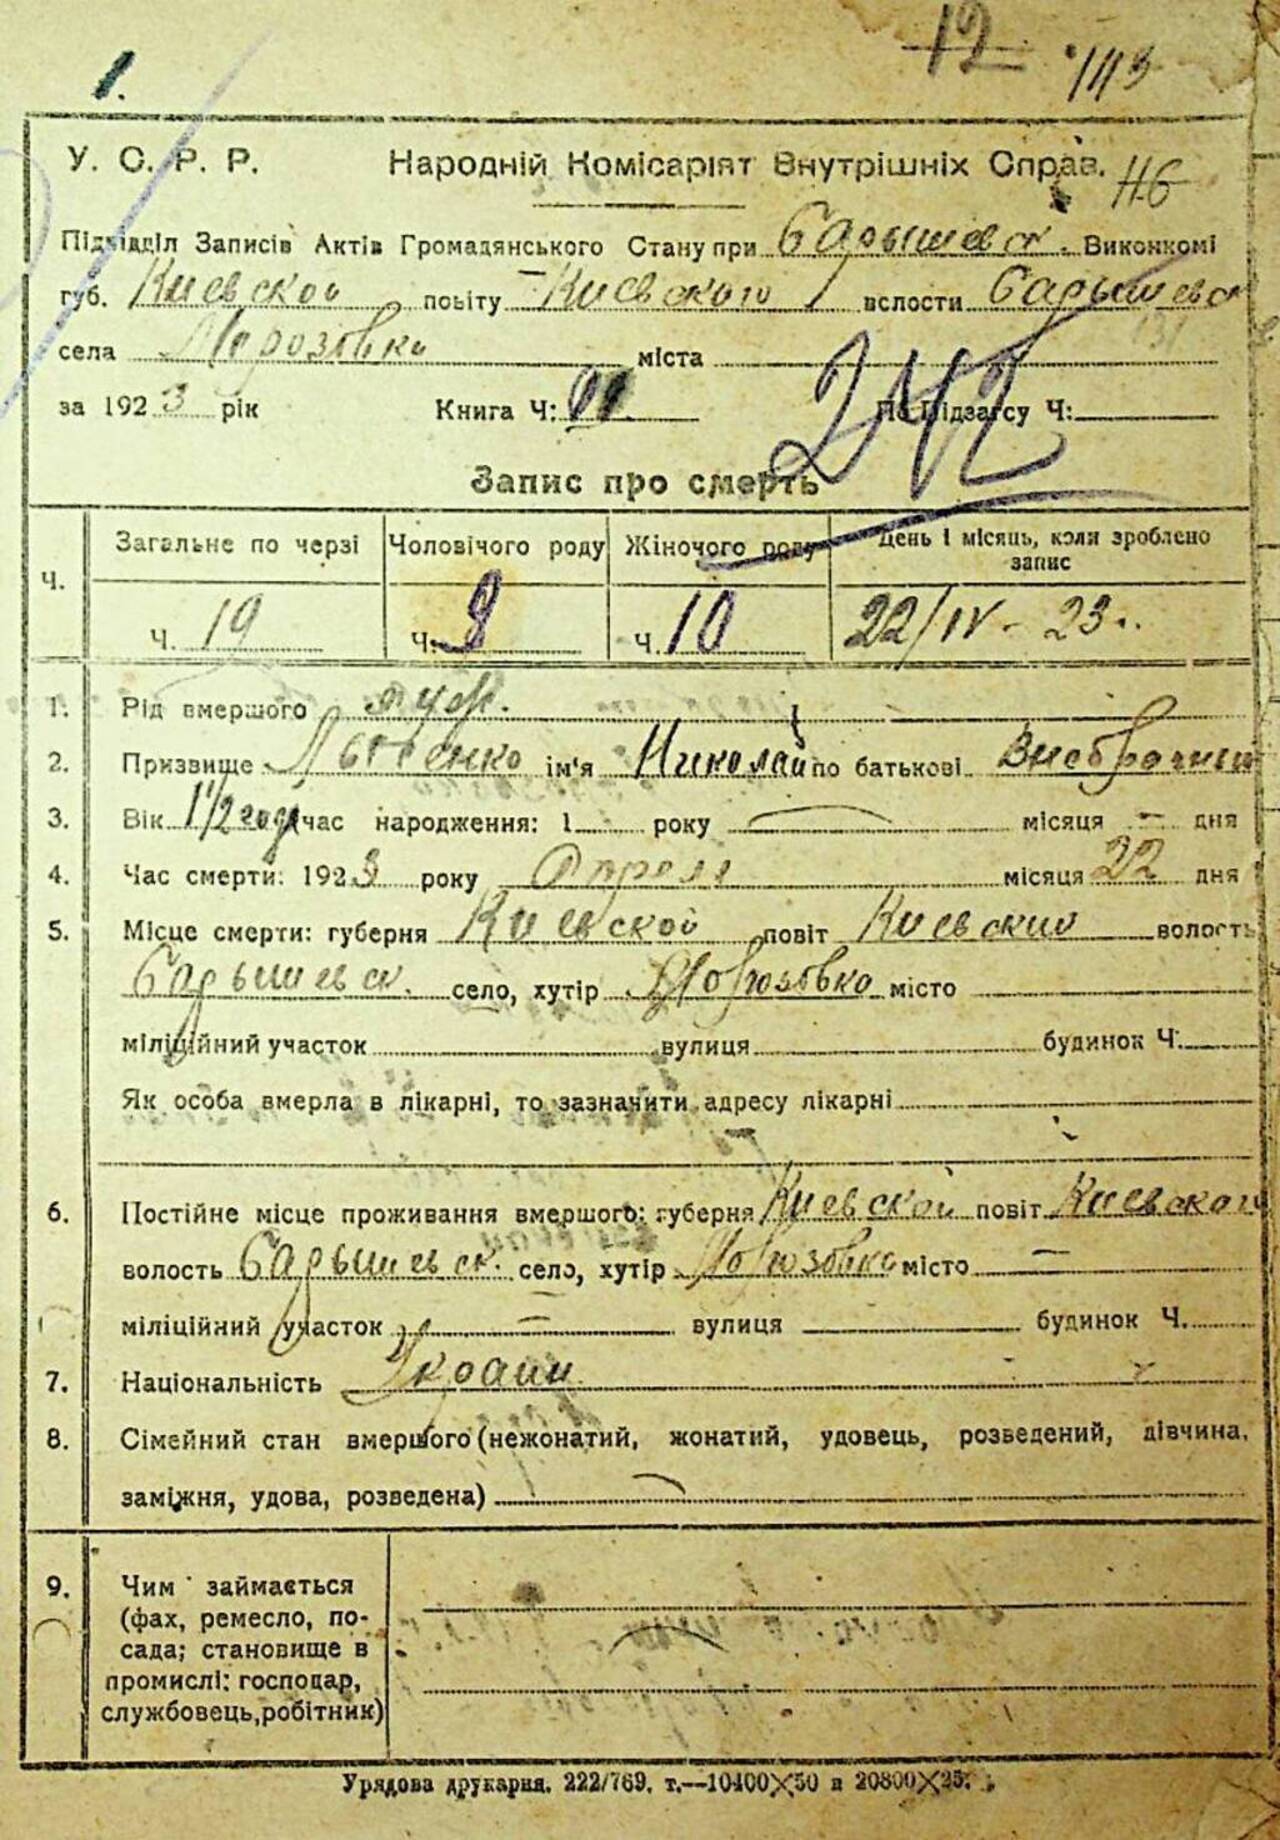 1.
12
113
У. С. Р. Р. Народній Комісаріят Внутрішніх Справ.
116
Підвідділ Записів Актів Громадянського Стану при Бардышевск. Виконкомі
губ. Киевской повіту Киевского вслости Бардышевск
села Морозовка міста
за 1923 рік Книга Ч: По Підзагсу Ч:
242
Запис про смерть
Ч. Загальне по черзі Чоловічого роду Жіночого роду День і місяць, коли зроблено
запис
Ч. 19 Ч. 9 Ч. 10 22/IV - 23..
1. Рід вмершого муж.
2. Призвище ім'я Николай по батькові Внебрачный
3. Вік 1 1/2 года час народження: 1 року — місяця — дня
4. Час смерти: 1923 року Апреля місяця 22 дня
5. Місце смерти: губерня Киевской повіт Киевский волость
Бардышевск. село, хутір Морозовка місто
міліційний участок вулиця будинок Ч.
Як особа вмерла в лікарні, то зазначити адресу лікарні
6. Постійне місце проживання вмершого: губерня Киевской повіт Киевской
волость Бардышевск. село, хутір Морозовка місто —
міліційний участок — вулиця будинок Ч.
7. Національність Украин
8. Сімейний стан вмершого (нежонатий, жонатий, удовець, розведений, дівчина,
заміжня, удова, розведена) —
9. Чим займається
(фах, ремесло, по-
сада; становище в
промислі: господар,
службовець, робітник)
Урядова друкарня. 222/769. т.—10400×50 и 20800×25.